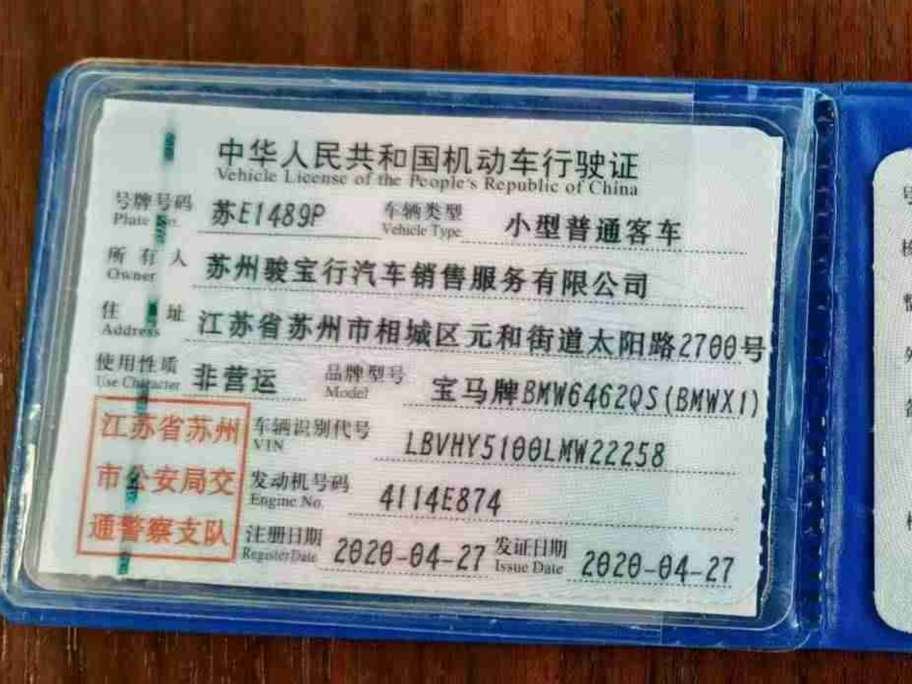 中华人民共和国机动车行驶证
Vehicle License of the People's Republic of China
号牌号码 苏E1489P 车辆类型 小型普通客车
Plate No. Vehicle Type
所有人 苏州骏宝行汽车销售服务有限公司
Owner
住址 江苏省苏州市相城区元和街道太阳路2700号
Address
使用性质 非营运 品牌型号 宝马牌BMW6462QS(BMWX1)
Use Character Model
江苏省苏州
市公安局交
通警察支队
车辆识别代号 LBVHY5100LMW22258
VIN
发动机号码 4114E874
Engine No.
注册日期 2020-04-27 发证日期 2020-04-27
Register Date Issue Date
号